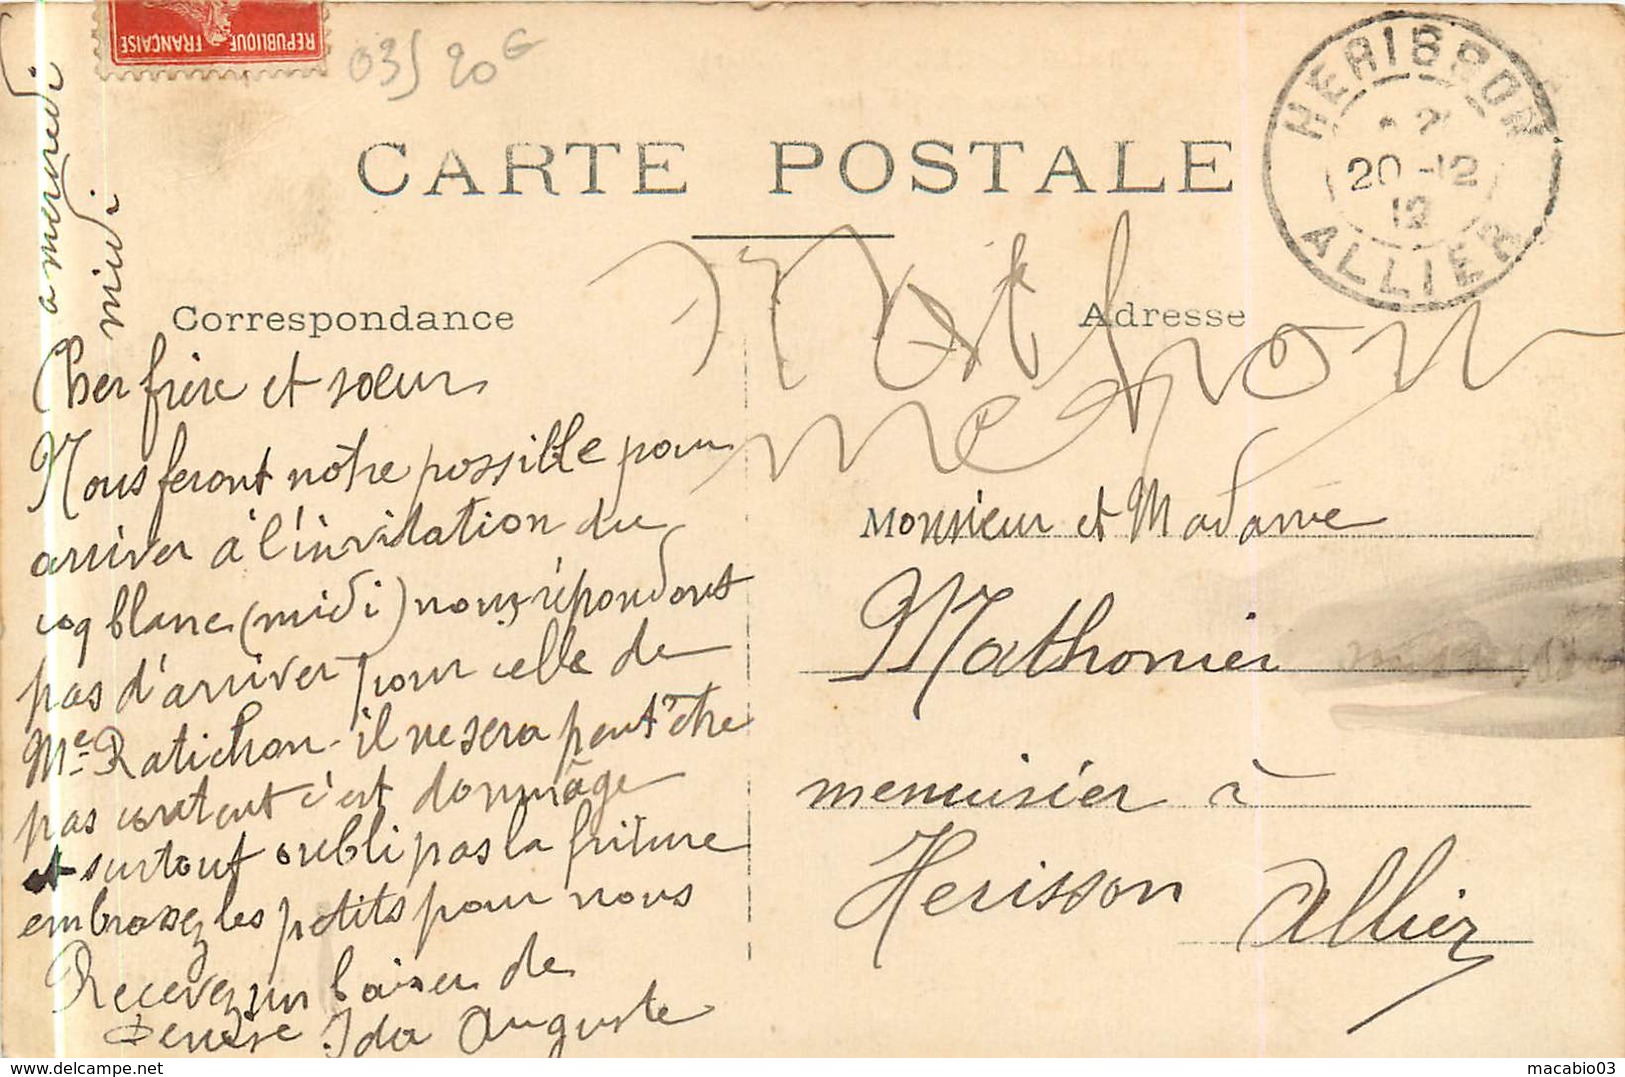 REPUBLIQUE FRANÇAISE
03/ 20 €
HERISSON
20-12
12
ALLIER
CARTE POSTALE
Correspondance
Adresse
a mercredi
midi
Cher frère et sœur
Nous feront notre possible pour
arriver à l'invitation du
coq blanc (midi) nous répondons
pas d'arriver pour celle de
Me Ratichon - il ne sera peut être
pas content c'est dommage
et surtout oubli pas la friture
embrassez les petits pour nous
Recevez un baiser de
Denise Ida Auguste
Monsieur et Madame
Mathonier
menuisier à
Herisson
Allier
macabio03